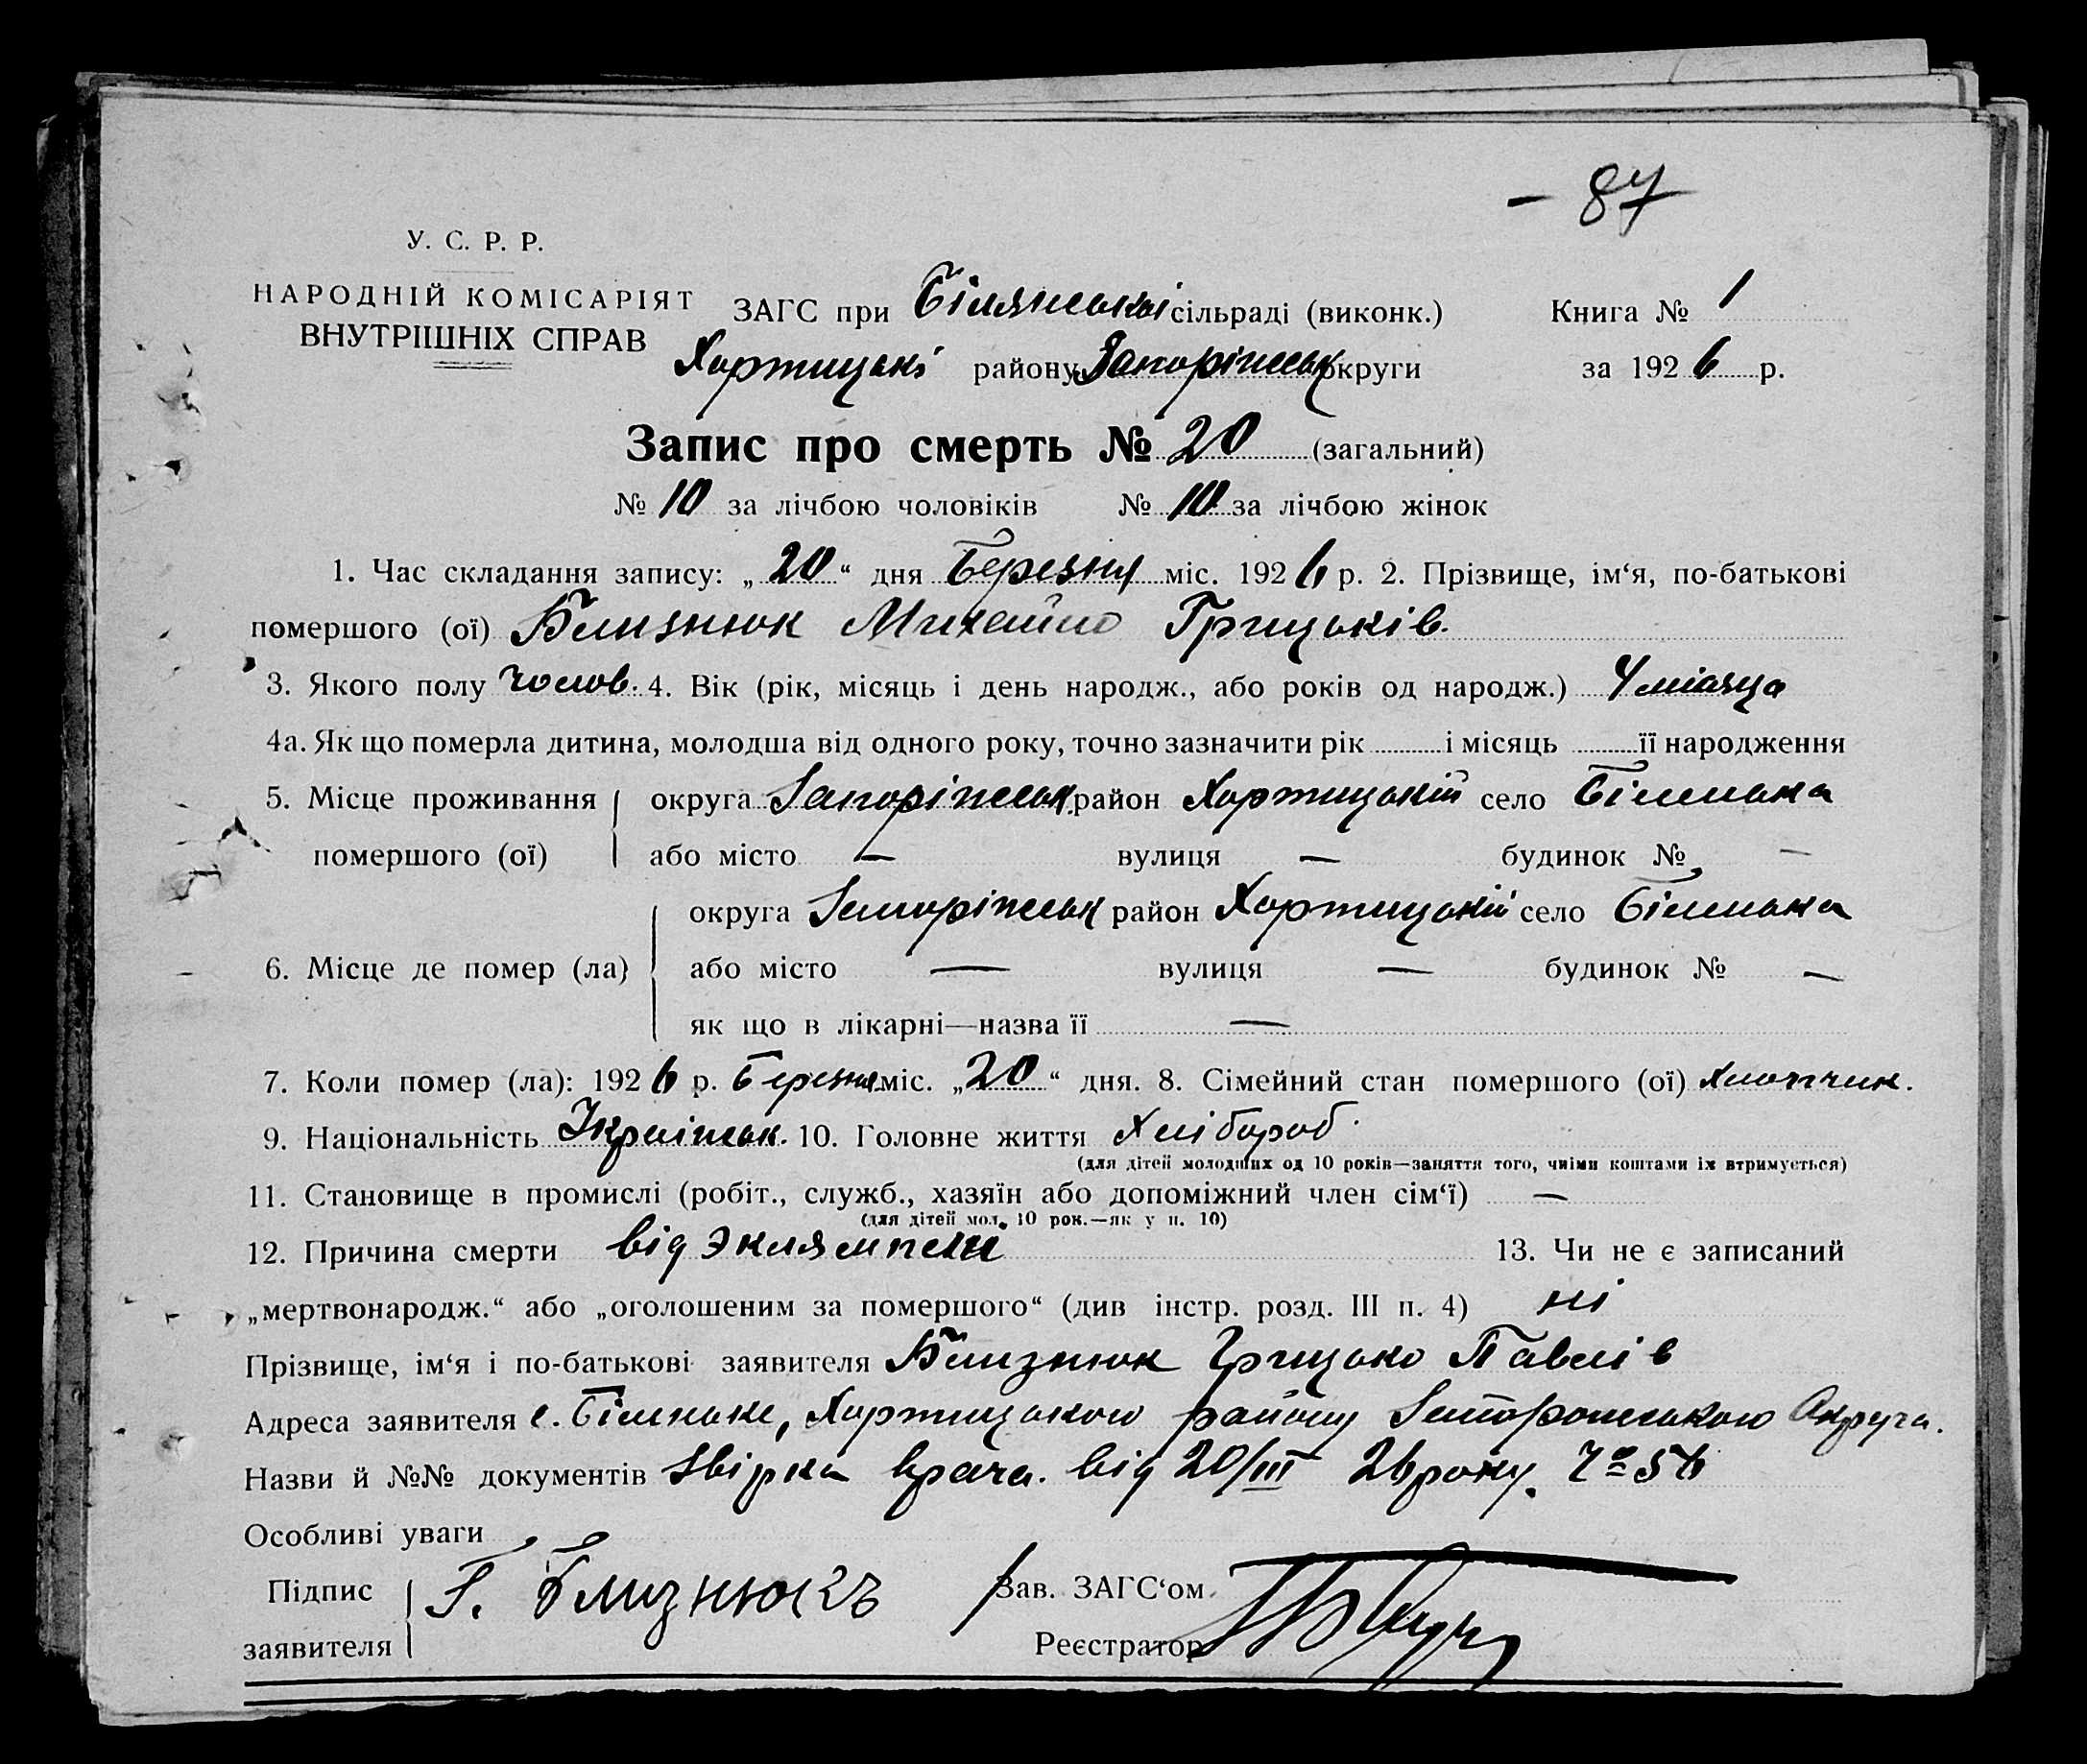 - 87
У. С. Р. Р.
НАРОДНІЙ КОМІСАРІЯТ
ВНУТРІШНІХ СПРАВ
ЗАГС при Білянській сільраді (виконк.) Книга № 1
Хортицькі району Запоріжськ округи за 1926 р.
Запис про смерть № 20 (загальний)
№ 10 за лічбою чоловіків № 10 за лічбою жінок
1. Час складання запису: „20“ дня Березня міс. 1926 р. 2. Прізвище, ім‘я, по-батькові
помершого (ої) Близнюк Михайло Грицьків.
3. Якого полу Чолов. 4. Вік (рік, місяць і день народж., або років од народж.) 4 місяца
4а. Як що померла дитина, молодша від одного року, точно зазначити рік і місяць її народження
5. Місце проживання округа Запоріжськ. район Хортицький село Біленька
помершого (ої) або місто — вулиця — будинок № —
округа Запоріжськ район Хортицький село Біленька
6. Місце де помер (ла) або місто — вулиця — будинок № —
як що в лікарні—назва її —
7. Коли помер (ла): 1926 р. Березня міс. „20“ дня. 8. Сімейний стан помершого (ої) хлопчик.
9. Національність Украінськ. 10. Головне життя Хлібороб.
(для дітей молодших од 10 років—заняття того, чиїми коштами їх втримується)
11. Становище в промислі (робіт., служб., хазяїн або допоміжний член сім‘ї) —
(для дітей мол. 10 рок.—як у п. 10)
12. Причина смерти від эклямпсии 13. Чи не є записаний
„мертвонародж.“ або „оголошеним за помершого“ (див інстр. розд. III п. 4) ні
Прізвище, ім‘я і по-батькові заявителя Близнюк Грицько Павлів
Адреса заявителя с. Біленьке, Хортицького району Запорожського Округа.
Назви й №№ документів врача. від 20/III 26 року. Чо 56
Особливі уваги
Підпис Г. Близнюкъ Зав. ЗАГС‘ом
заявителя Реєстратор